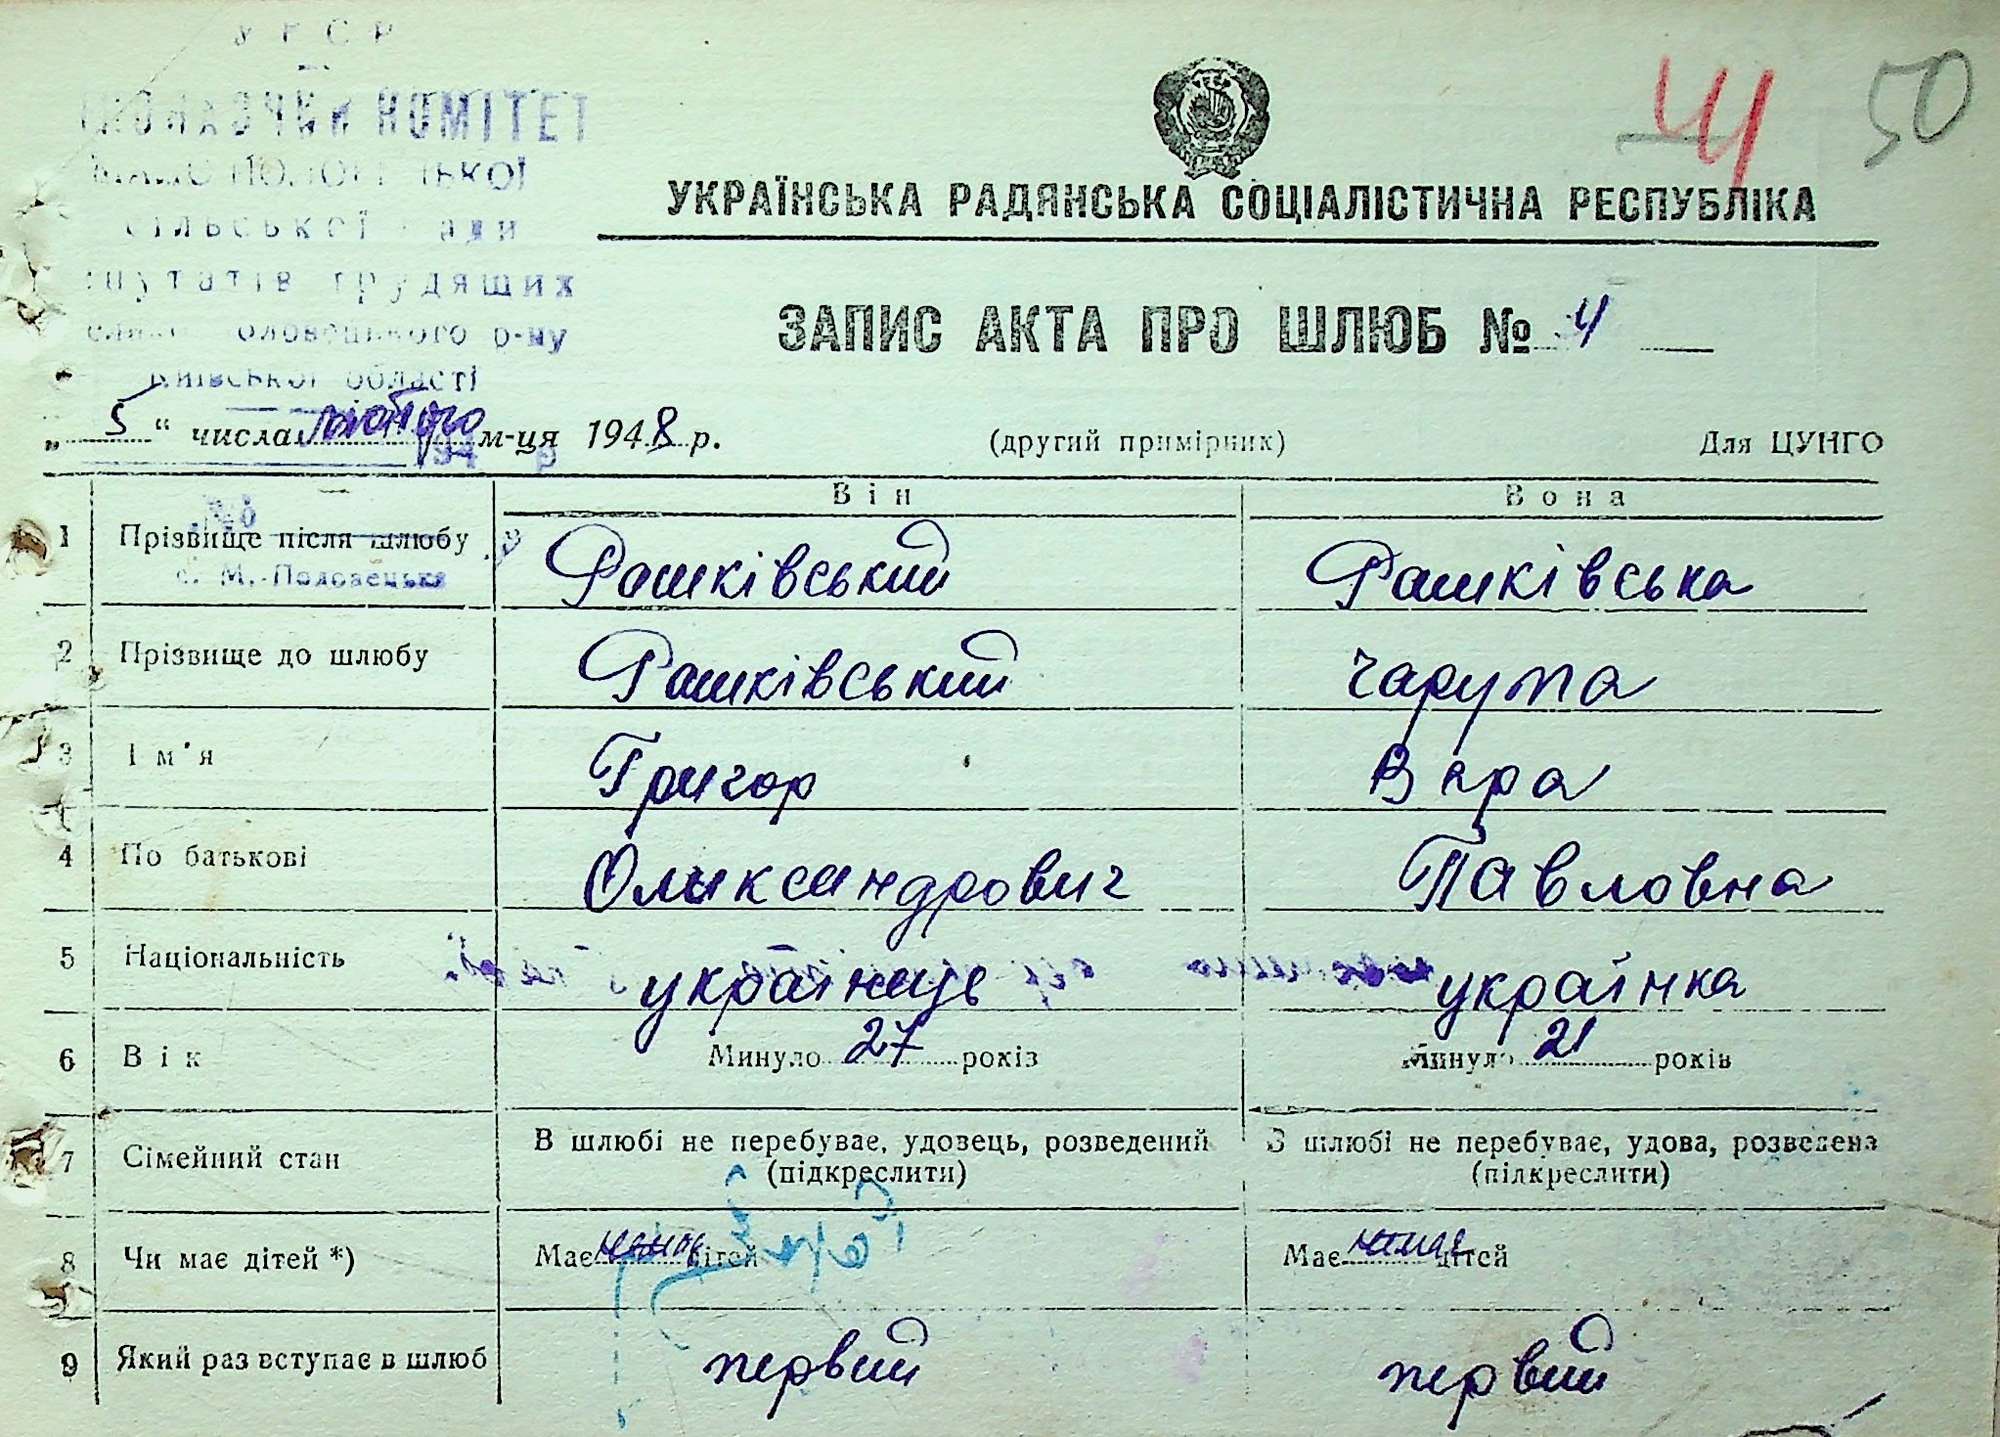 УРСР
КОМІТЕТ
сільської ради
трудящих
р-ну
Київської області
4 50
УКРАЇНСЬКА РАДЯНСЬКА СОЦІАЛІСТИЧНА РЕСПУБЛІКА
ЗАПИС АКТА ПРО ШЛЮБ № 4
„ 5 “ числа лютого м-ця 1948 р. (другий примірник) Для ЦУНГО
Він Вона
1 Прізвище після шлюбу Рашківський Рашківська
с. М.-Половецьке
2 Прізвище до шлюбу Рашківський Чарупа
3 Ім'я Григор Вера
4 По батькові Олександрович Павловна
5 Національність українець українка
6 Вік Минуло 27 років Минуло 21 років
7 Сімейний стан В шлюбі не перебуває, удовець, розведений В шлюбі не перебуває, удова, розведена
(підкреслити) (підкреслити)
8 Чи має дітей *) Має немає дітей Має немає дітей
9 Який раз вступає в шлюб первий первий